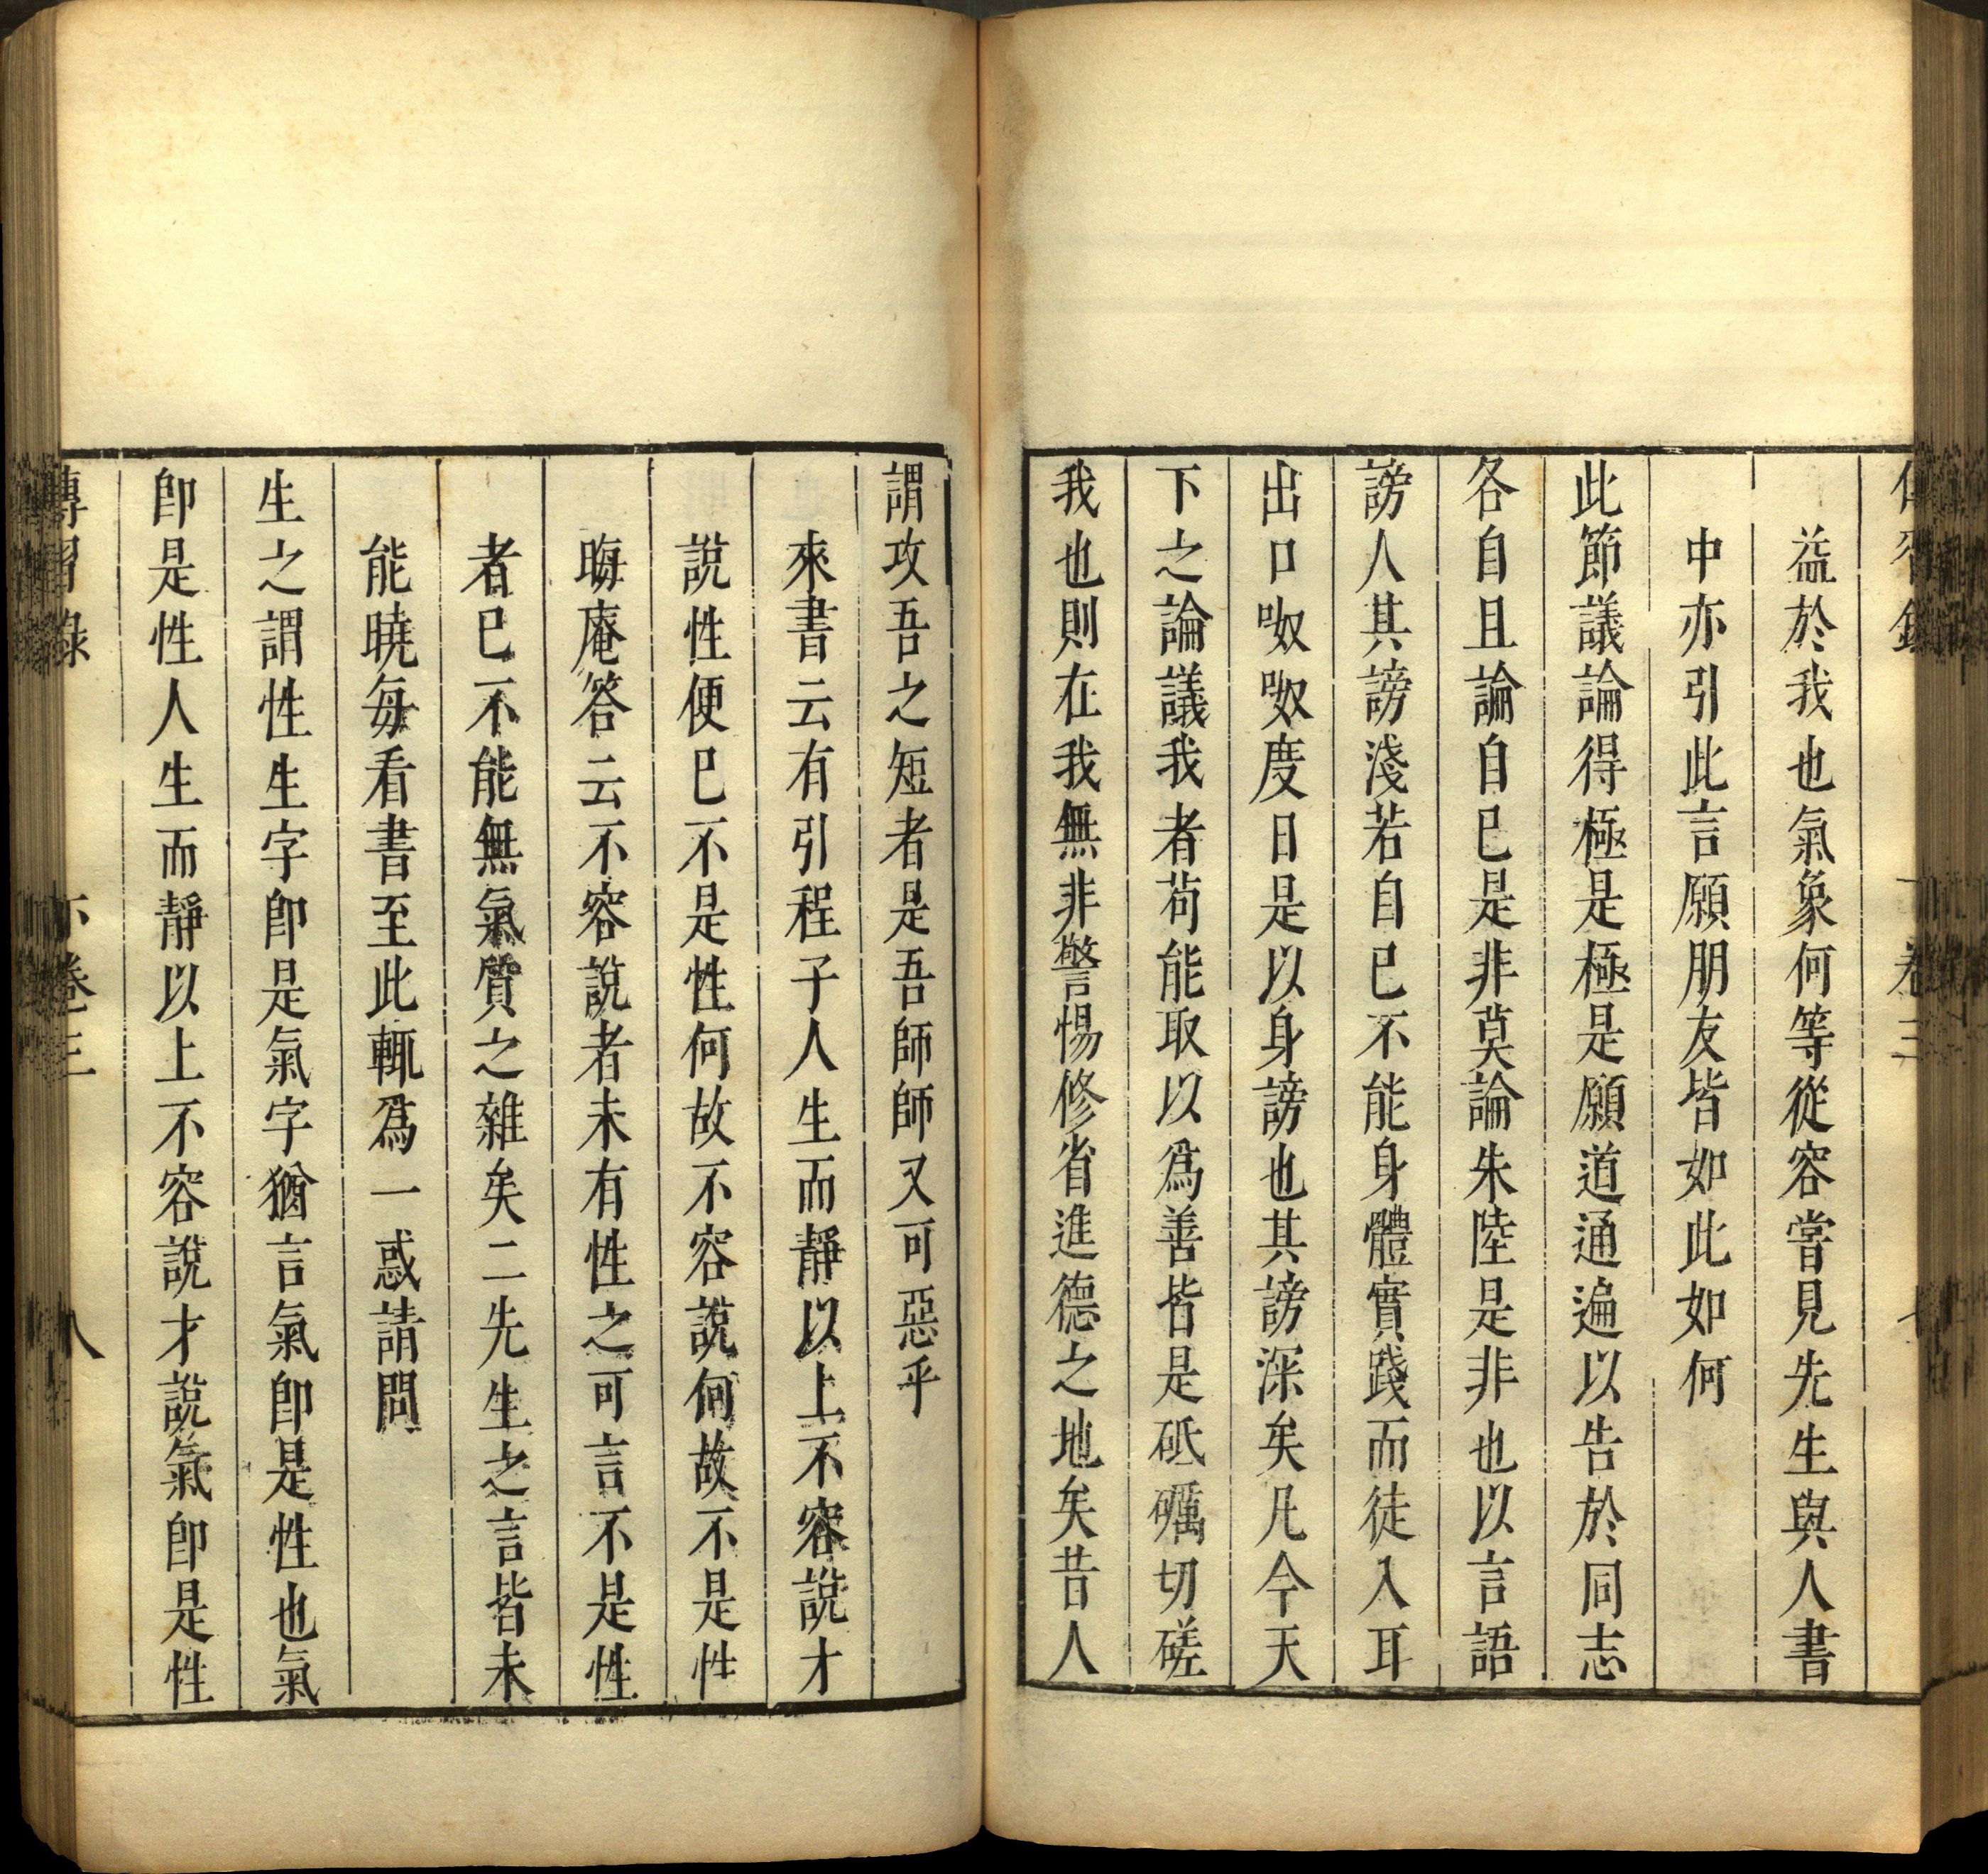 益於我也氣象何等從容嘗見先生與人書
中亦引此言願朋友皆如此如何
此節議論得極是極是願道通遍以告於同志
各自且論自已是非莫論朱陸是非也以言語
謗人其謗淺若自已不能身體實踐而徒入耳
出口呶呶度日是以身謗也其謗深矣凡今天
下之論議我者苟能取以爲善皆是砥礪切磋
我也則在我無非警惕修省進德之地矣昔人
謂攻吾之短者是吾師師又可惡乎
來書云有引程子人生而靜以上不容說才
說性便巳不是性何故不容說何故不是性
晦庵答云不容說者未有性之可言不是性
者巳不能無氣質之雜矣二先生之言皆未
能曉每看書至此輒爲一惑請問
生之謂性生字卽是氣字猶言氣卽是性也氣
卽是性人生而靜以上不容說才說氣卽是性
傳習錄
卷三
八